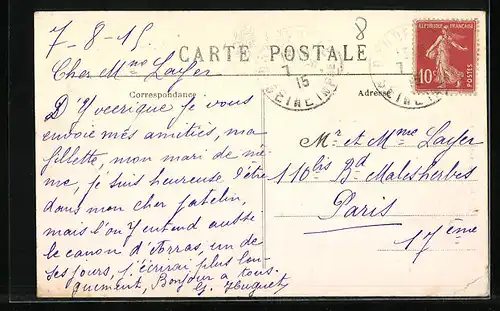 7-8-15
8
CARTE POSTALE
REPUBLIQUE FRANÇAISE
10c
POSTES
Cher Mme Layer
7
15
SEINE INFRE
7
SEINE INFRE
Correspondance
Adresse
D'Yvecrique je vous
envoie mes amitiés, ma
fillette, mon mari de mê-
me, je suis heureuse d'être
dans mon cher patelin,
mais l'on y entend aussi
le canon d'Arras, un de
ses jours, j'écrirai plus lon-
guement, Bonjour a tous.
G. Huguet
Mr et Mme Layer
110 bis Bd Malesherbes
Paris
17ème